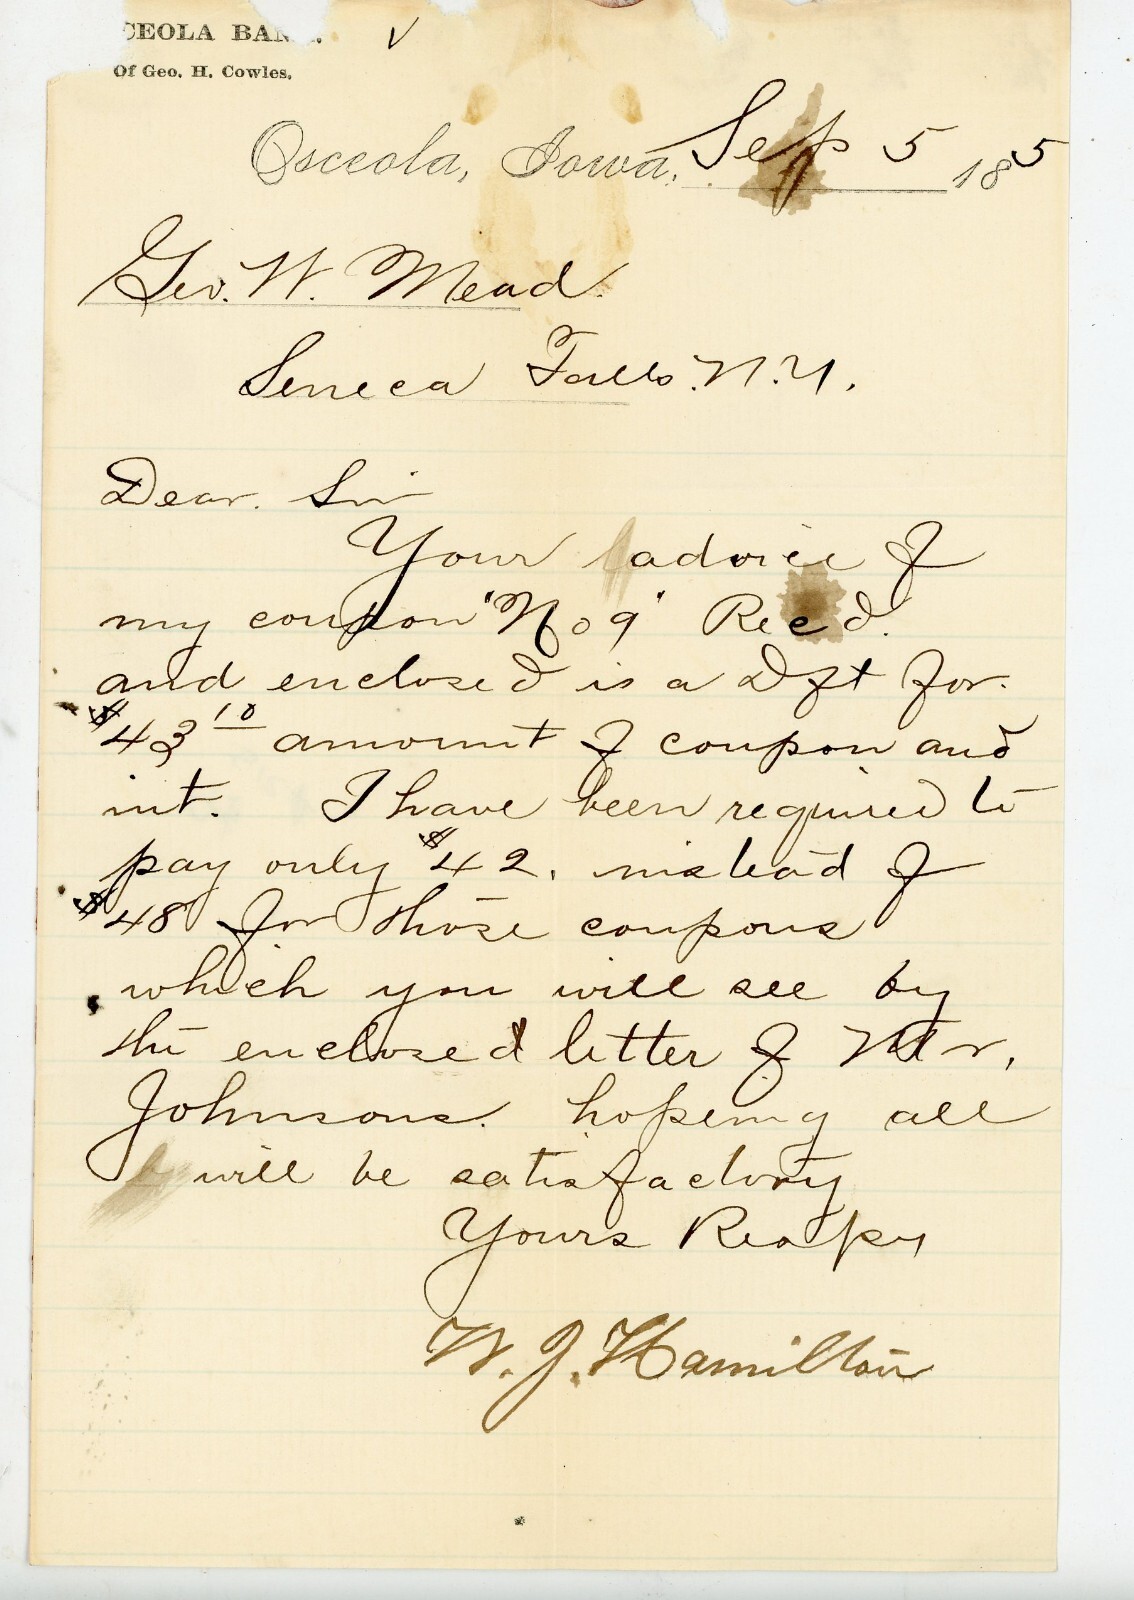 CEOLA BANK.
Of Geo. H. Cowles.
Osceola, Iowa, Sep 5 185
Geo. W. Mead.
Seneca Falls. N.Y.
Dear. Sir
Your advice of
my coupon "No 9" Recd.
and enclosed is a Dft for.
$43 10 amount of coupon and
int. I have been required to
pay only $42. instead of
$48 for those coupons
which you will see by
the enclosed letter of Mr.
Johnsons. hopeing all
will be satisfactory
Yours Respy
W. J. Hamilton